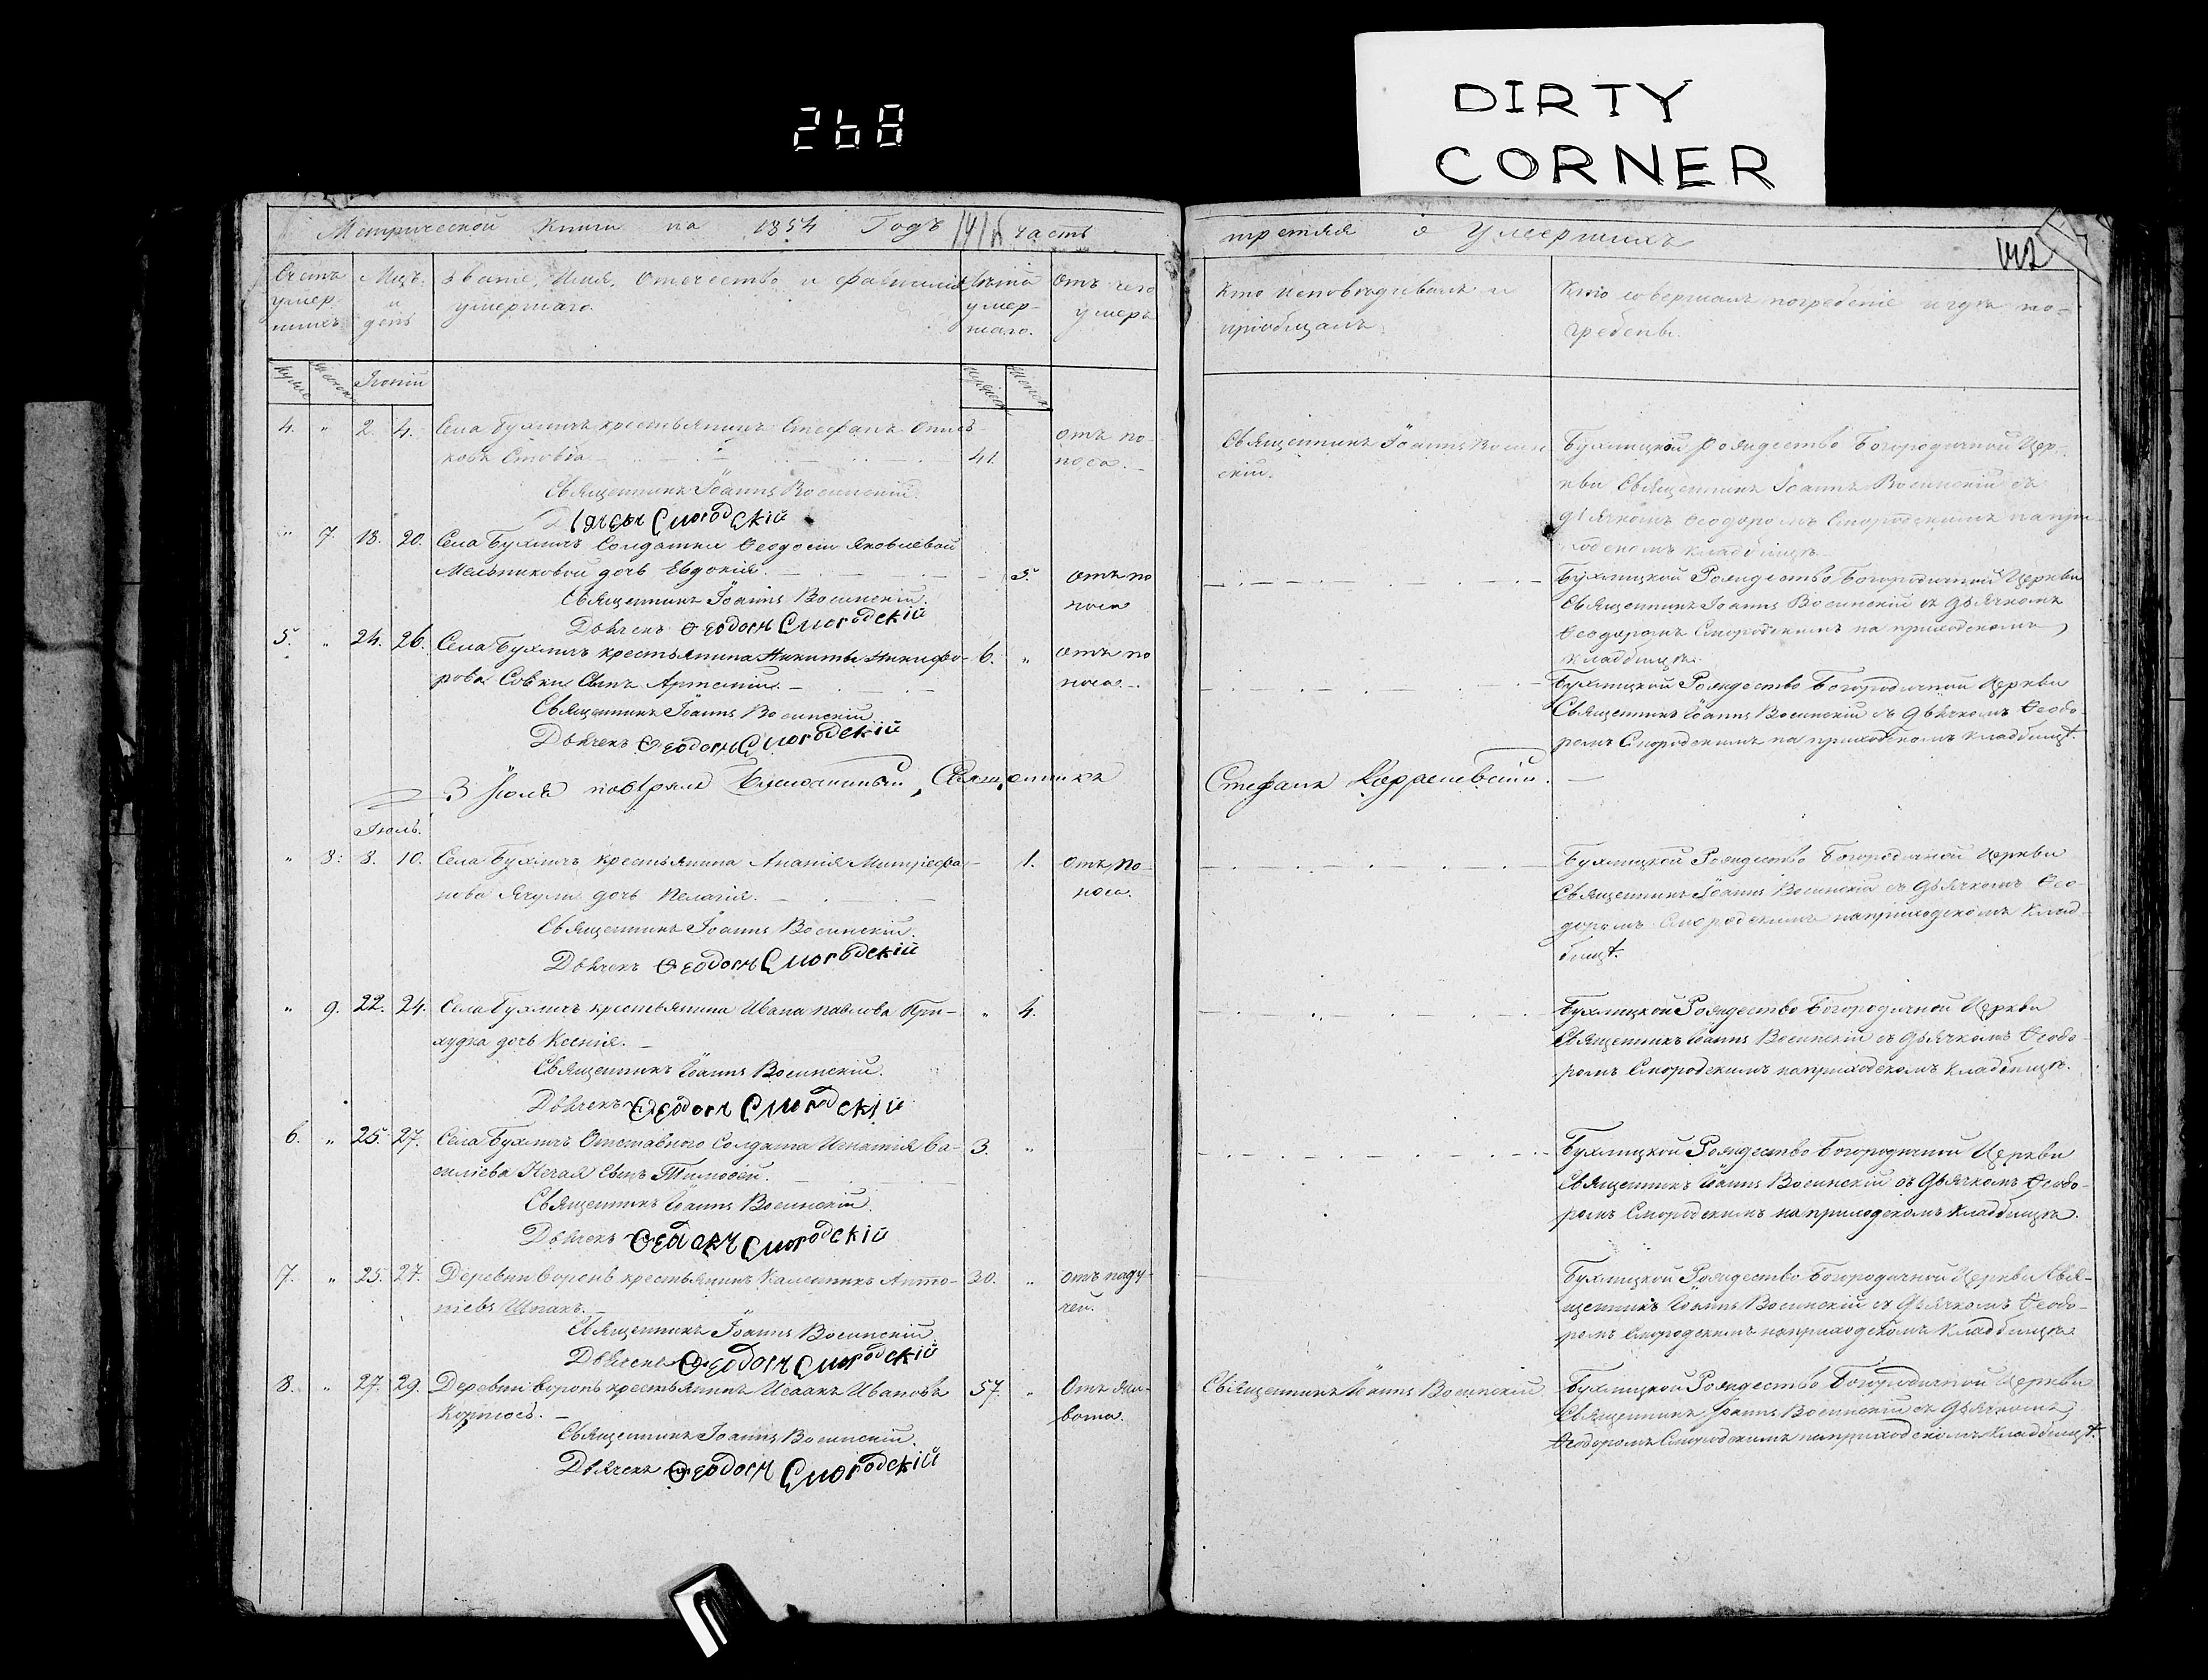 268
DIRTY
CORNER
Метрической Книги на 1854 Годъ часть
третяя о Умершихъ
142
Счетъ умер-шихъ
Мцъ. и день
Званіе, Имя, Отечество и фамилія умершаго.
Лѣта умер-шаго.
Отъ чего умеръ
Кто исповѣдывалъ и пріобщалъ.
Кто совершалъ погребеніе и гдѣ по-гребены.
Іюній
4. " 2. 4. Села Бухличъ крестьянинъ Стефанъ 41. отъ по-
носа.
Священникъ Іоаннъ Восинскій.
Дьячекъ Смородскій
Священникъ Іоаннъ Восин
скій.
Бухлицкой Рождество Богородичной Цер-
кви Священникъ Іоаннъ Восинскій съ
дьячкомъ Ѳеодоромъ Смородскимъ на при
ходскомъ кладбищѣ.
" 7. 18. 20. Села Бухличъ Солдатки Ѳеодосіи Яковлевой
Мельниковой дочь Евдокія. 5. отъ по
носа
Священникъ Іоаннъ Восинскій.
Дьячекъ Ѳеодоръ Смородскій
Бухлицкой Рождество Богородичной Церкви
Священникъ Іоаннъ Восинскій съ дьячкомъ
Ѳеодоромъ Смородскимъ на приходскомъ
кладбищѣ.
5. " 24. 26. Села Бухличъ крестьянина Никиты Никифо- 6. " отъ по
рова Совки сынъ Артемій. носа.
Священникъ Іоаннъ Восинскій
Дьячекъ Ѳеодоръ Смородскій
Бухлицкой Рождество Богородичной Церкви
Священникъ Іоаннъ Восинскій съ дьячкомъ Ѳеодо-
ромъ Смородскимъ на приходскомъ кладбищѣ.
3 Іюля повѣрялъ Благочинный, Священникъ Стефанъ
Іюль.
" 8. 8. 10. Села Бухличъ крестьянина Ананія Митрофа- 1. отъ по-
нова Ячули дочь Пелагія. носа.
Священникъ Іоаннъ Восинскій.
Дьячекъ Ѳеодоръ Смородскій
Бухлицкой Рождество Богородичной Церкви
Священникъ Іоаннъ Восинскій съ дьячкомъ Ѳео-
доромъ Смородскимъ на приходскомъ клад-
бищѣ.
" 9. 22. 24. Села Бухличъ крестьянина Ивана Павлова При- " 4.
худка дочь Ксенія.
Священникъ Іоаннъ Восинскій.
Дьячекъ Ѳеодоръ Смородскій
Бухлицкой Рождество Богородичной Церкви
Священникъ Іоаннъ Восинскій съ дьячкомъ Ѳеодо-
ромъ Смородскимъ на приходскомъ кладбищѣ.
6. " 25. 27. Села Бухличъ Отставного Солдата Игнатія Ва- 3. "
силіева Нечая сынъ Тимоѳей.
Священникъ Іоаннъ Восинскій.
Дьячекъ Ѳеодоръ Смородскій
Бухлицкой Рождество Богородичной Церкви
Священникъ Іоаннъ Восинскій съ дьячкомъ Ѳеодо-
ромъ Смородскимъ на приходскомъ кладбищѣ.
7. " 25. 27. ДеревниВоронь крестьянинъ Каленикъ Анто- 30. " отъ паду-
ніевъ Шпакъ. чей.
Священникъ Іоаннъ Восинскій.
Дьячекъ Ѳеодоръ Смородскій
Бухлицкой Рождество Богородичной Церкви Свя-
щенникъ Іоаннъ Восинскій съ дьячкомъ Ѳеодо-
ромъ Смородскимъ на приходскомъ кладбищѣ
8. " 27. 29. Деревни Воронь крестьянинъ Исаакъ Ивановъ 57. " Отъ жи-
вота.
Священникъ Іоаннъ Восинскій.
Дьячекъ Ѳеодоръ Смородскій
Священникъ Іоаннъ Восинскій
Бухлицкой Рождество Богородичной Церкви
Священникъ Іоаннъ Восинскій съ дьячкомъ
Ѳеодоромъ Смородскимъ на приходскомъ кладбищѣ.